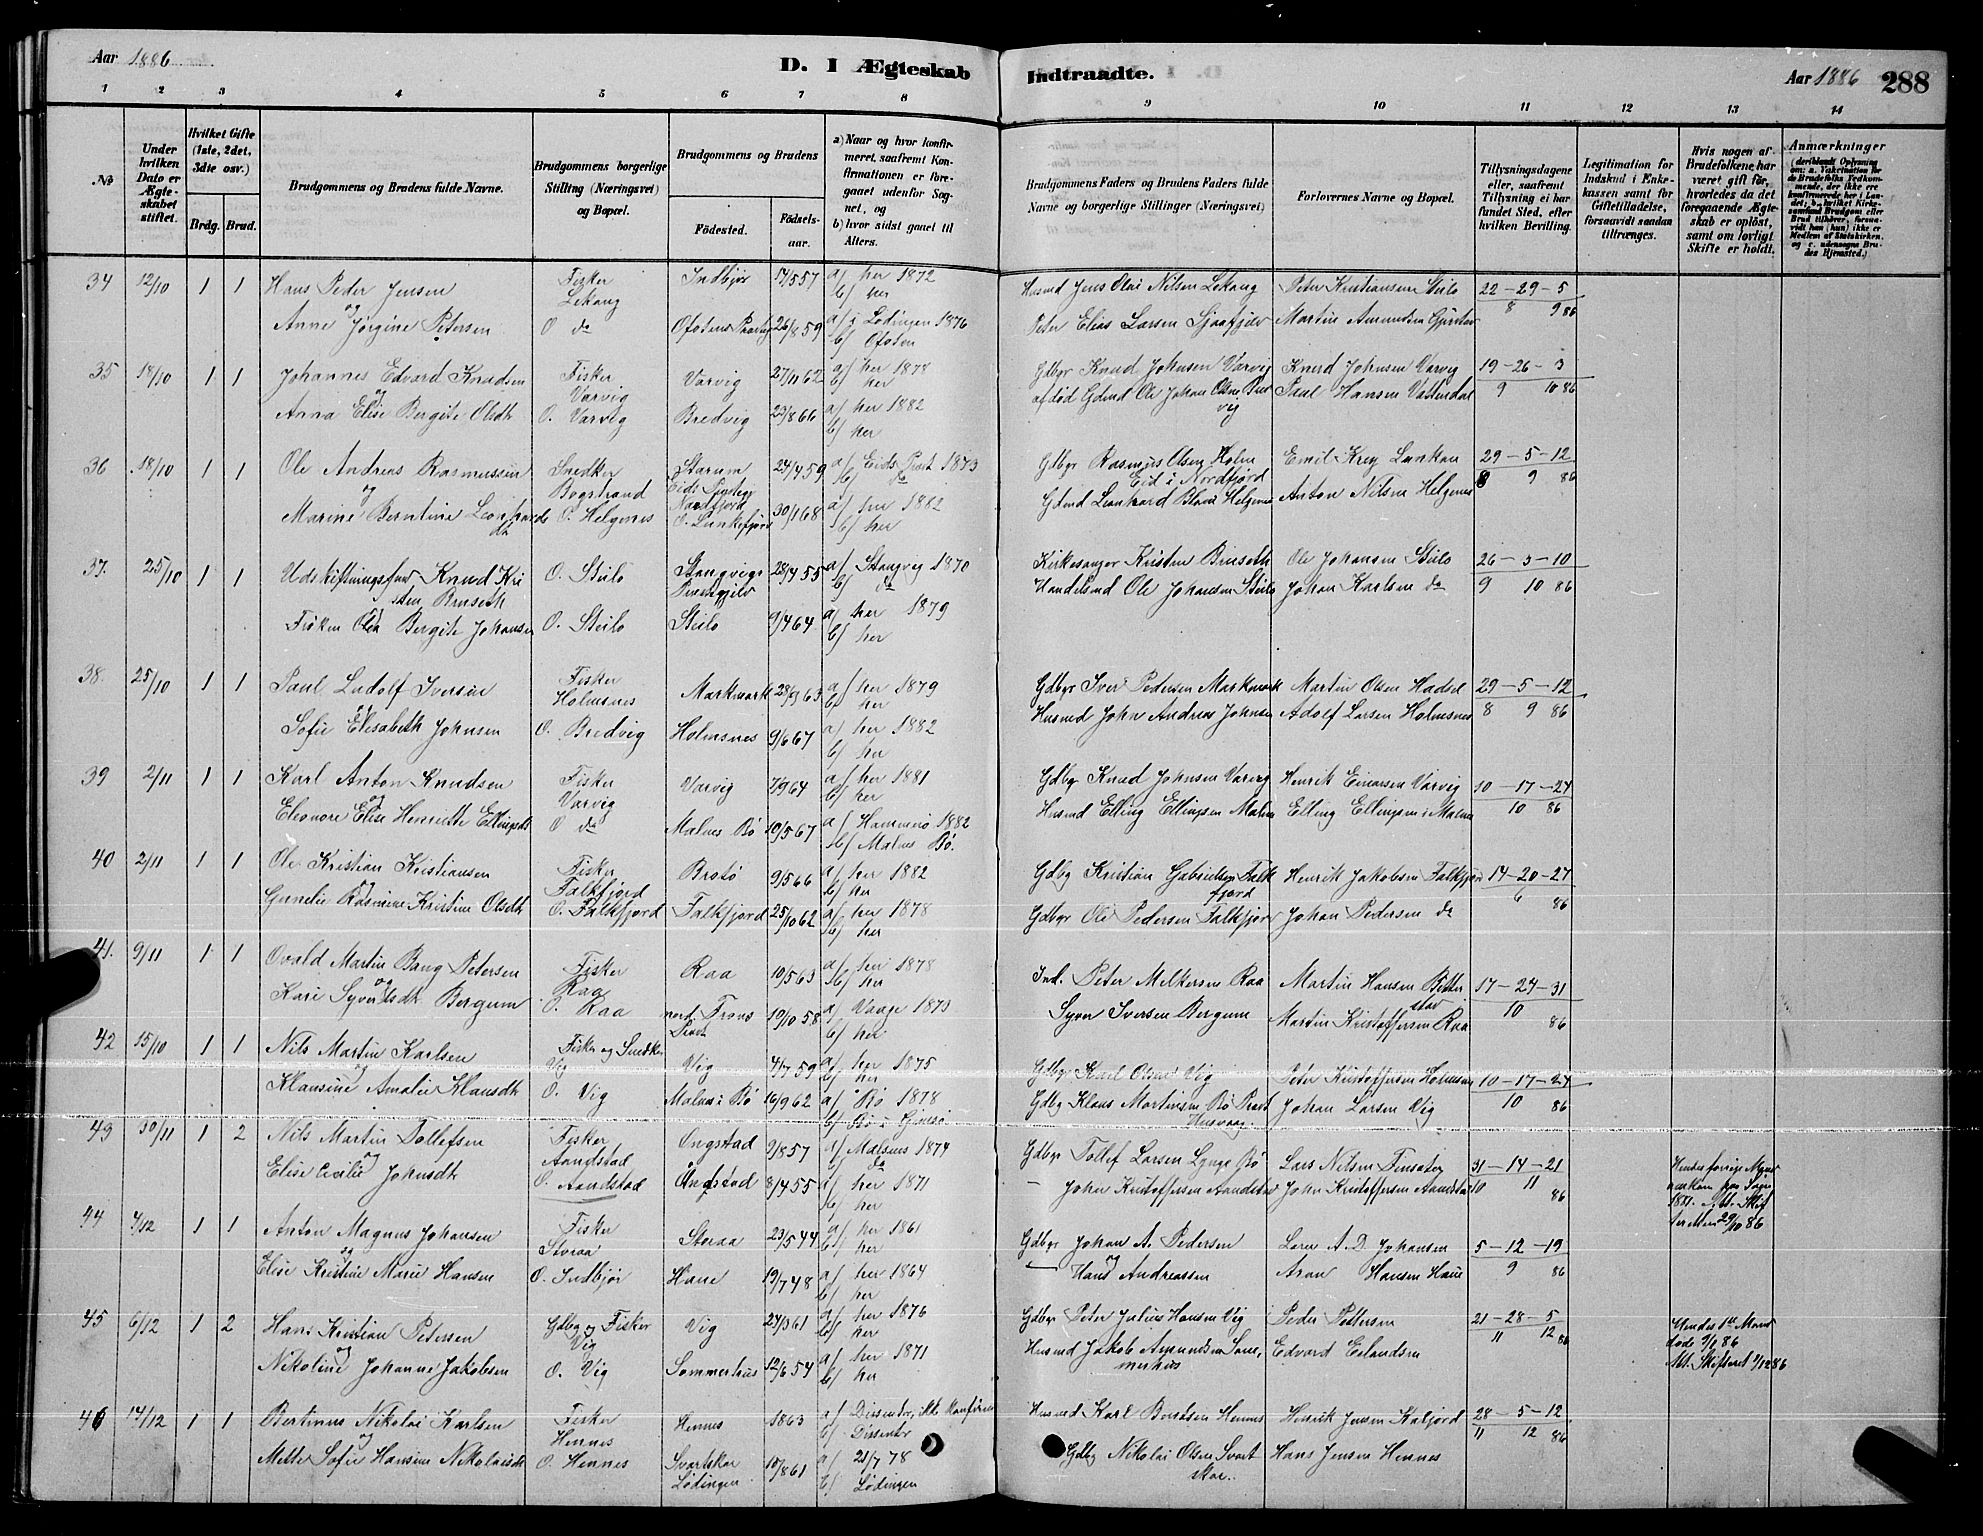 Aar 1886
D. I Ægteskab Indtraadte.
Aar 1886 288
1 2 3 4 5 6 7 8 9 10 11 12 13 14
No
Under hvilken Dato er Ægteskabet stiftet.
Hvilket Gifte (1ste, 2det, 3die osv.)
Brdg. Brud.
Brudgommens og Brudens fulde Navne.
Brudgommens borgerlige Stilling (Næringsvei) og Bopæl.
Brudgommens og Brudens
Fødested.
Fødselsaar.
a) Naar og hvor konfirmeret, saafremt Konfirmationen er foregaaet udenfor Sognet, og
b) hvor sidst gaaet til Alters.
Brudgommens Faders og Brudens Faders fulde Navne og borgerlige Stillinger (Næringsvei)
Forlovernes Navne og Bopæl.
Tillysningsdagene eller, saafremt Tillysning ei har fundet Sted, efter hvilken Bevilling.
Legitimation for Indskud i Enkekassen samt for Giftetilladelse, forsaavidt saadan tiltrænges.
Hvis nogen af Brudefolkene har været gift før, hvorledes da det foregaaende Ægteskab er opløst, samt om lovligt Skifte er holdt.
Anmærkninger
34 12/10 1 1 Hans Peder Jensen Fisker Lekang Indbjør 17/5 57 a/ her 1872 b/ her Husmd Jens Olai Nilsen Lekang Peter Kristiansen Steilo 22-29-5
og
Anne Jørgine Petersen O do Ofotens 26/8 59 a/ i Lødingen 1876 b/ Ofoten Peter Elias Larsen Martin Amundsen 8 9 86
35 18/10 1 1 Johannes Edvard Knudsen Fisker Varvig Varvig 27/11 62 a/ her 1878 b/ her Gdbgr Knud Johnsen Varvig Knud Johnsen Varvig 19-26-3
og
Anna Elise Bergite Olsdt O. Varvig Bredvig 22/8 66 a/ her 1882 b/ her afdød Gdmd Ole Johan Olsen Bredvig Paul Hansen Vattendal 9 10 86
36 18/10 1 1 Ole Andreas Rasmussen Snedker Bogstrand Starum Eids Nordfjord 24/4 59 a/ Eids Præst 1873 b/ do Gdbgr Rasmus Olsen Holm Eid i Nordfjord Emil Krey Lunkan 29-5-12
og
Marine Berntine Leonhardsdt O. Helgenes O. Lunkefjord 30/1 68 a/ her 1882 b/ her Gdmd Leonhard Helgenes Anton Nilsen Helgenes 8 9 86
37. 25/10 1 1 Udskiftningsfuldm Knud Kristen Bruseth O. Steilo Stangvigs Præstegjeld 28/4 55 a/ Stangvig 1870 b/ do Kirkesanger Kristen Bruseth Ole Johansen Steilo 26-3-10
Frøken Olea Bergite Johansen O. Steilo Steilo 9/4 64 a/ her 1879 b/ her Handelsmd Ole Johansen Steilo Johan Karlsen do 9 10 86
38. 25/10 1 1 Paul Ludolf Iversen Fisker Holmsnes Markvark 28/9 63 a/ her 1879 b/ her Gdbgr Iver Pedersen Markvark Martin Olsen Hadsel 29-5-12
Sofie Elisabeth Johnsen O. Bredvig Holmsnes 9/6 67 a/ her 1882 b/ her Husmd John Andreas Johnsen Adolf Larsen Holmsnes 8 9 86
39 2/11 1 1 Karl Anton Knudsen Fisker Varvig Varvig 7/9 64 a/ her 1881 b/ her Gdbgr Knud Johnsen Varvig Henrik Einarsen Varvig 10-17-24
og
Eleonore Elise Henriette Ellingsdt O do Malnes Bø 19/5 67 a/ Hammerø 1882 b/ Malnes Bø. Husmd Elling Ellingsen Malnes Elling Ellingsen i Malnes 10 86
40 2/11 1 1 Ole Kristian Kristiansen Fisker Falkfjord Brotø 9/5 66 a/ her 1882 b/ her Gdbg Kristian Gabrielsen Falkfjord Henrik Jakobsen Falkfjord 14-20-27
og
Gunelie Rasmine Kristine Olsdt O. Falkfjord Falkfjord 25/10 62 a/ her 1878 b/ her Gdbgr Ole Pedersen Falkfjord Johan Pedersen do 6 86
41. 9/11 1 1 Ovald Martin Bang Petersen Fisker Raa Raa 19/5 63 a/ her 1878 b/ her Ind. Peter Melkersen Raa Martin Hansen 17-24-31
og
Kari Syversdt Bergum O. Raa 19/10 58 a/ Vaage 1873 b/ her Syver Iversen Bergum Martin Kristoffersen Raa 10 86
42 15/10 1 1 Nils Martin Karlsen Fisker og Snedker Vig Vig 4/7 59 a/ her 1875 b/ her Gdbgr Karl Olsen Vig Peter Kristoffersen Holmsnes 10-17-24
og
Klausine Amalie Klausdt O. Vig Malnes i Bø 16/9 62 a/ Bø 1878 b/ Bø i Gimsø Gdbg Klaus Martinsen Bø Præst Husvaag. Johan Larsen Vig 10 86
43 30/11 1 2 Nils Martin Tollefsen Fisker Aandstad Ongstad 9/8 57 a/ Malnes 1874 b/ do Gdbgr Tollef Larsen Lynge Bø Lars Nilsen Finsæter 31-14-21
og
Elise Cecilie Johnsdt O. Aandstad Ongstad 8/4 55 a/ her 1871 b/ her — John Kristoffersen Aandstad John Kristoffersen Aandstad 10 11 86 Hendes forrige Mand omkom paa Søen 1881. Att. Skifteretten 29/10 86
44 4/12 1 1 Anton Magnus Johansen Fisker Storaa Storaa 23/5 44 a/ her 1861 b/ her Gdbgr Johan A. Pedersen Loren A. D. Johansen 5-12-19
og
Elise Kristine Marie Hansen O. Indbjør Hane 19/7 48 a/ her 1864 b/ her — Hans Andreassen Aron Hansen Haue 9 86
45 6/12 1 2 Hans Kristian Petersen Gdbg og Fisker Vig Vig 24/3 61 a/ her 1876 b/ her Gdbgr Peter Julius Hansen Vig Peder Pettersen 21-28-5
og
Nikoline Johanne Jakobsen O. Vig Sommerhus 12/6 54 a/ her 1871 b/ her Husmd Jakob Amundsen Sommerhus Edvard Erlandsen 11 12 86 Hendes 1ste Mand døde 9/1 86 Att. Skifteret 2/12 86
46 14/12 1 1 Bertinus Nikolai Karlsen Fisker Hennes Hennes 1863 a/ Dissenter, ikke konfirm b/ Dissenter Husmd Karl Berntsen Hennes Henrik Jensen Kaljord 28-5-12
og
Mette Sofie Hansine Nikolaisdt O. Hennes Svartskar Lødingen 10/8 61 a/ 21/7 78 b/ Lødingen Gdbg Nikolai Olsen Svartskar. Hans Jensen Hennes 11 12 86